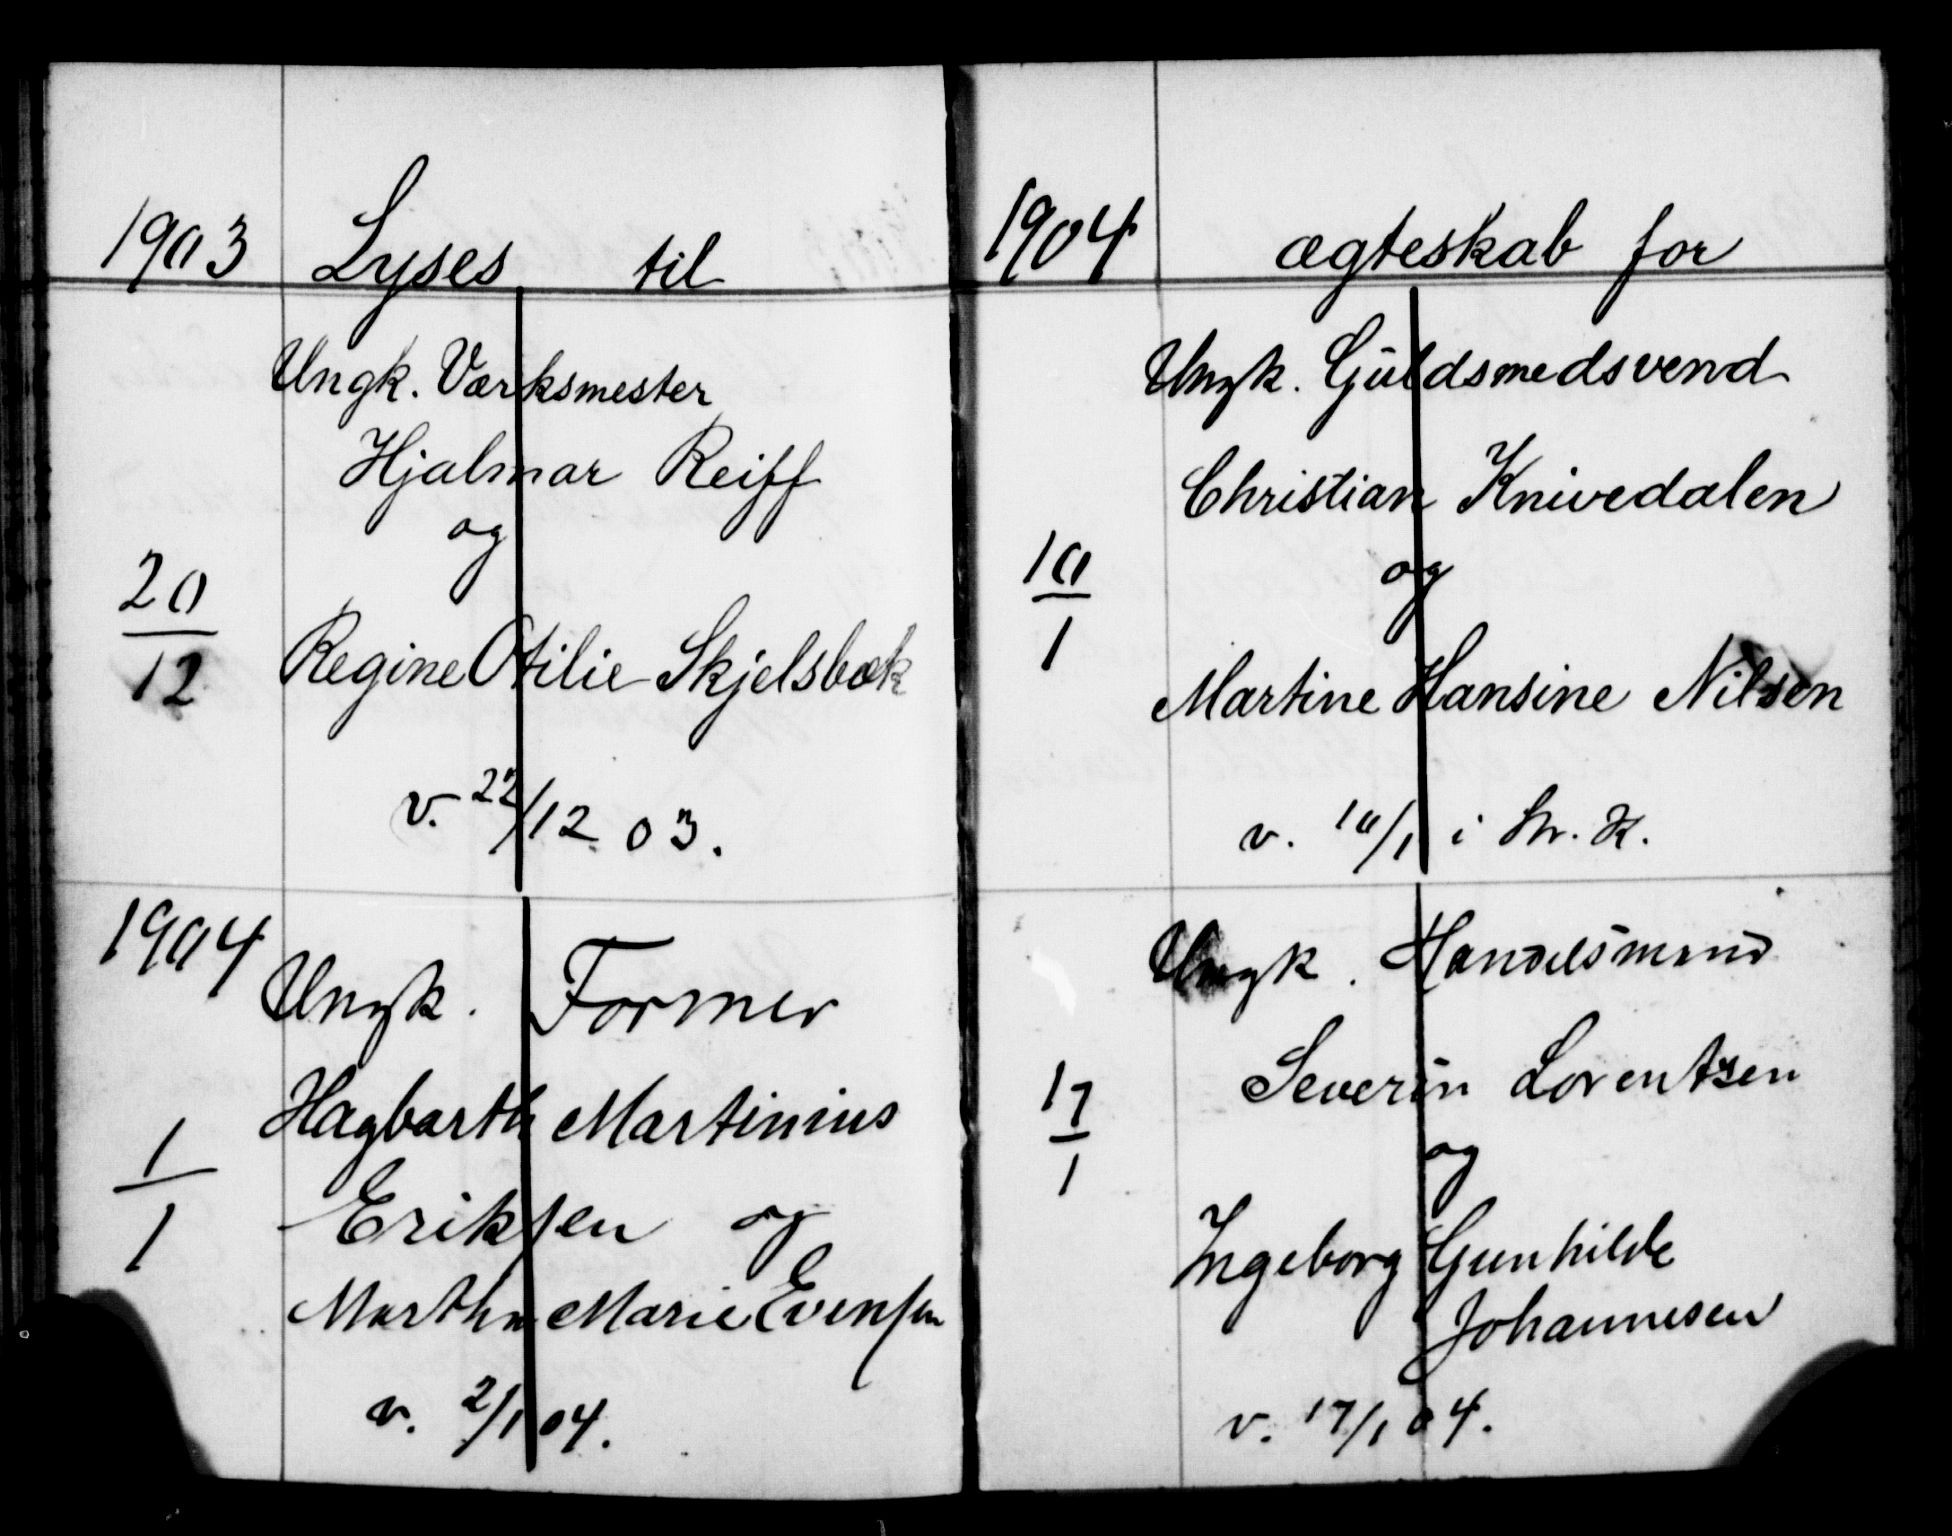 1903 Lyses til
Ungk. Værksmester
Hjalmar Reiff
og
20
12
Regine Otilie Skjelsbæk
v. 22/12 03.
1904
Ungk. Former
Hagbarth Martinius
1
1
Eriksen og
Martha Marie Evensen
v. 2/1 04.
1904 ægteskab for
Ungk. Guldsmedsvend
Christian Knivedalen
og
10
1
Martine Hansine Nilsen
v. 10/1 i Str. K.
Ungk. Handelsmand
Severin Lorentzen
17
1
og
Ingeborg Gunhilde
Johannesen
v. 17/1 04.